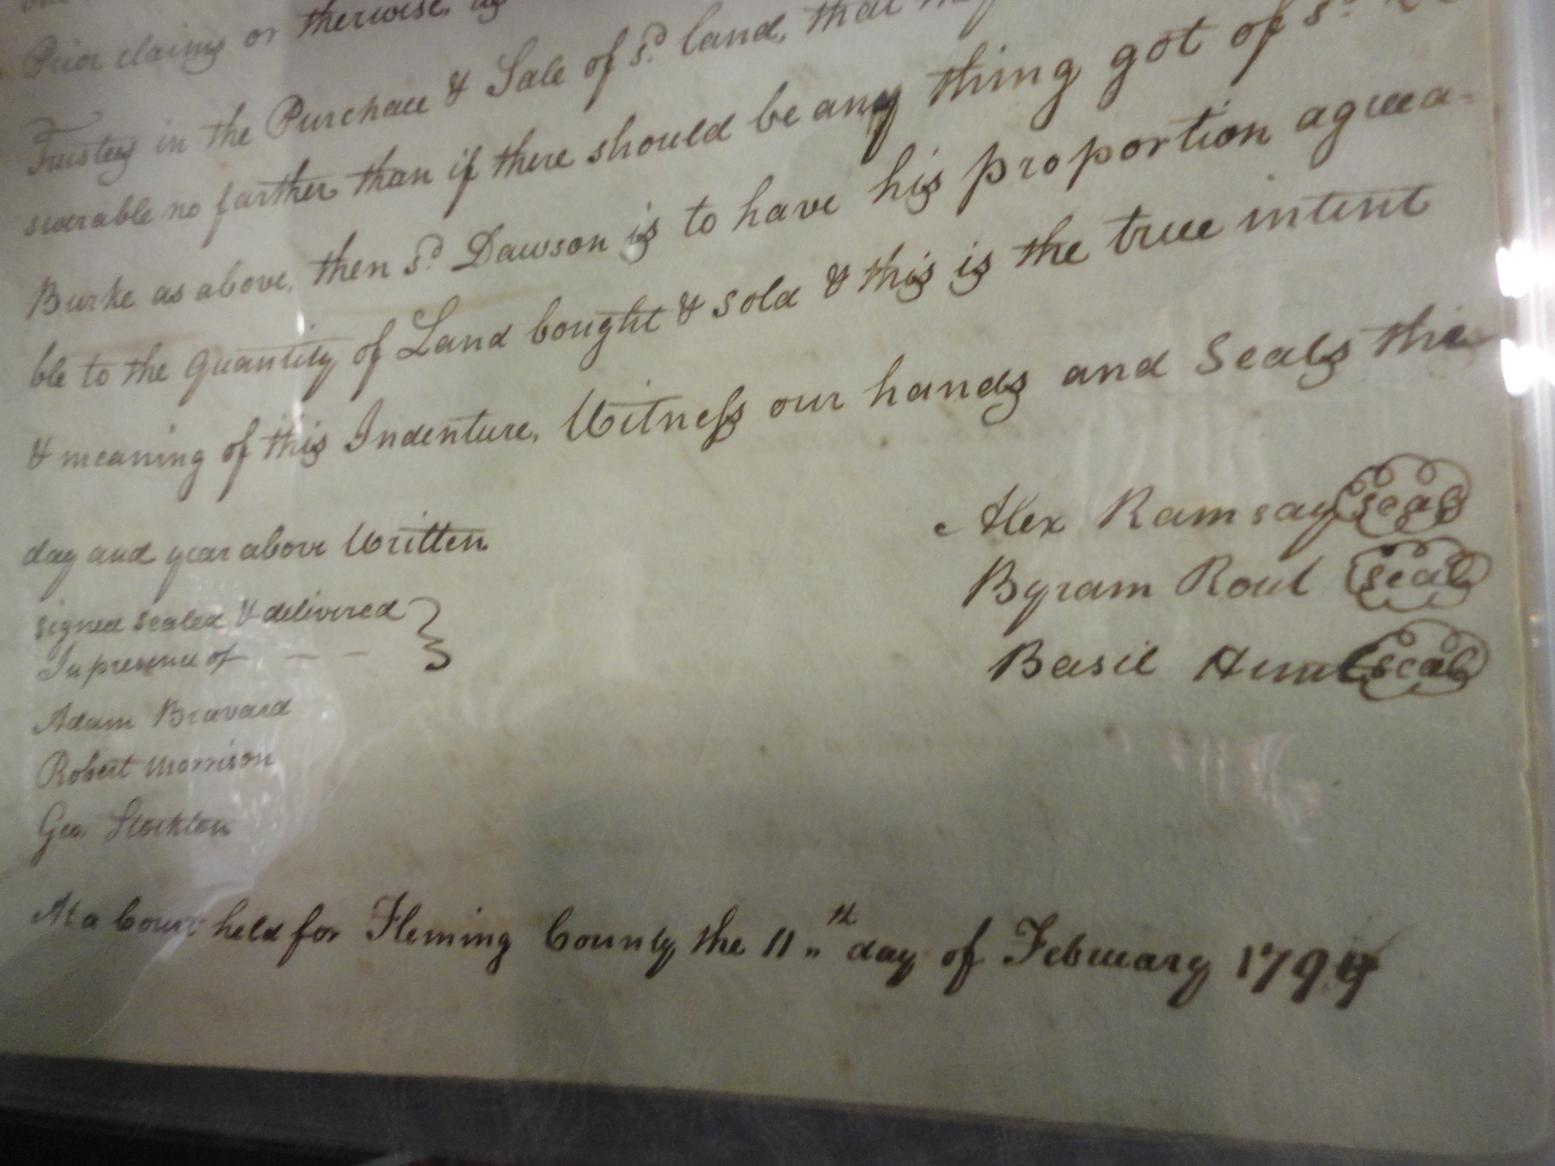 Prior claims or therwise, as
Trustees in the Purchace & Sale of sd. land, that
swarable no farther than if there should be any thing got of sd.
Burke as above, then sd. Dawson is to have his proportion agreea-
ble to the quantity of Land bought & sold & this is the true intent
& meaning of this Indenture, Witness our hands and Seals the
day and year above Written
signed sealed & delivered
In presence of — —
Alex Ramsay seal
Byram Rout seal
Basil Hunt seal
Adam Bravard
Robert Morrison
Geo. Stockton
At a Court held for Fleming County the 11th day of February 1799